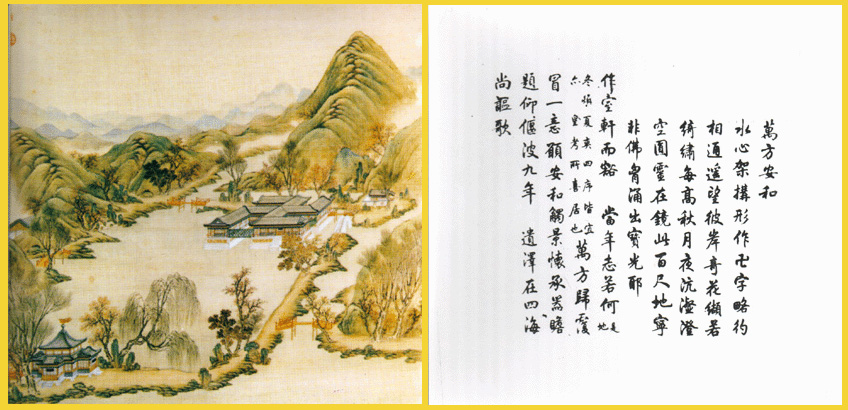 萬方安和
水心架構形作卍字略彴
相通遙望彼岸奇花纈若
綺繡每高秋月夜沆瀣澄
空圓靈在鏡此百尺地寧
非佛胷涌出寶光耶
作室軒而豁 當年志若何 是地
冬燠夏爽四序皆宜亦皇考所喜居也 萬方歸覆
冒一意願安和觸景懷承器瞻
題仰偃波九年 遺澤在四海
尚謳歌